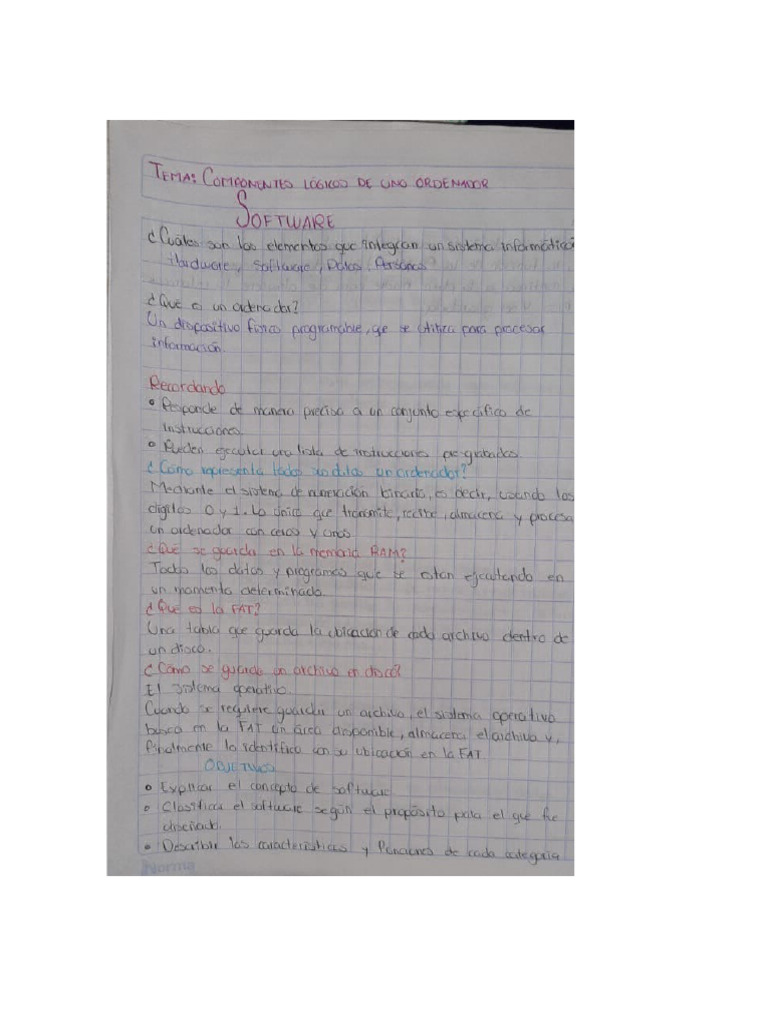 TEMA: COMPONENTES LÓGICOS DE UNO ORDENADOR
SOFTWARE
¿Cuáles son los elementos que integran un sistema informático
Hardware, Software, Datos, Personas
¿Qué es un ordenador?
Un dispositivo físico programable, qe se utiliza para procesar
información.
Recordando
• Responde de manera precisa a un conjunto específico de
instrucciones.
• Pueden ejecutar una lista de instrucciones pre-grabadas.
¿Cómo representa todos un ordenador?
Mediante el sistema de numeración binario, es decir, usando los
dígitos 0 y 1. Lo único que transmite, recibe, almacena y procesa
un ordenador con ceros y unos
¿Qué se guarda en la memoria RAM?
Todos los datos y programas que se estan ejecutando en
un momento determinado.
¿Qué es la FAT?
Una tabla que guarda la ubicación de cada archivo dentro de
un disco.
¿Cómo se guarda un archivo en disco?
El sistema operativo.
Cuando se requiere guardar un archivo, el sistema operativo
busca en la FAT un área disponible, almacena el archivo y,
finalmente lo identifica con su ubicación en la FAT.
OBJETIVOS
• Explicar el concepto de software
• Clasificar el software según el propósito para el que fue
diseñado.
• Describir las características y funciones de cada categoría
Norma